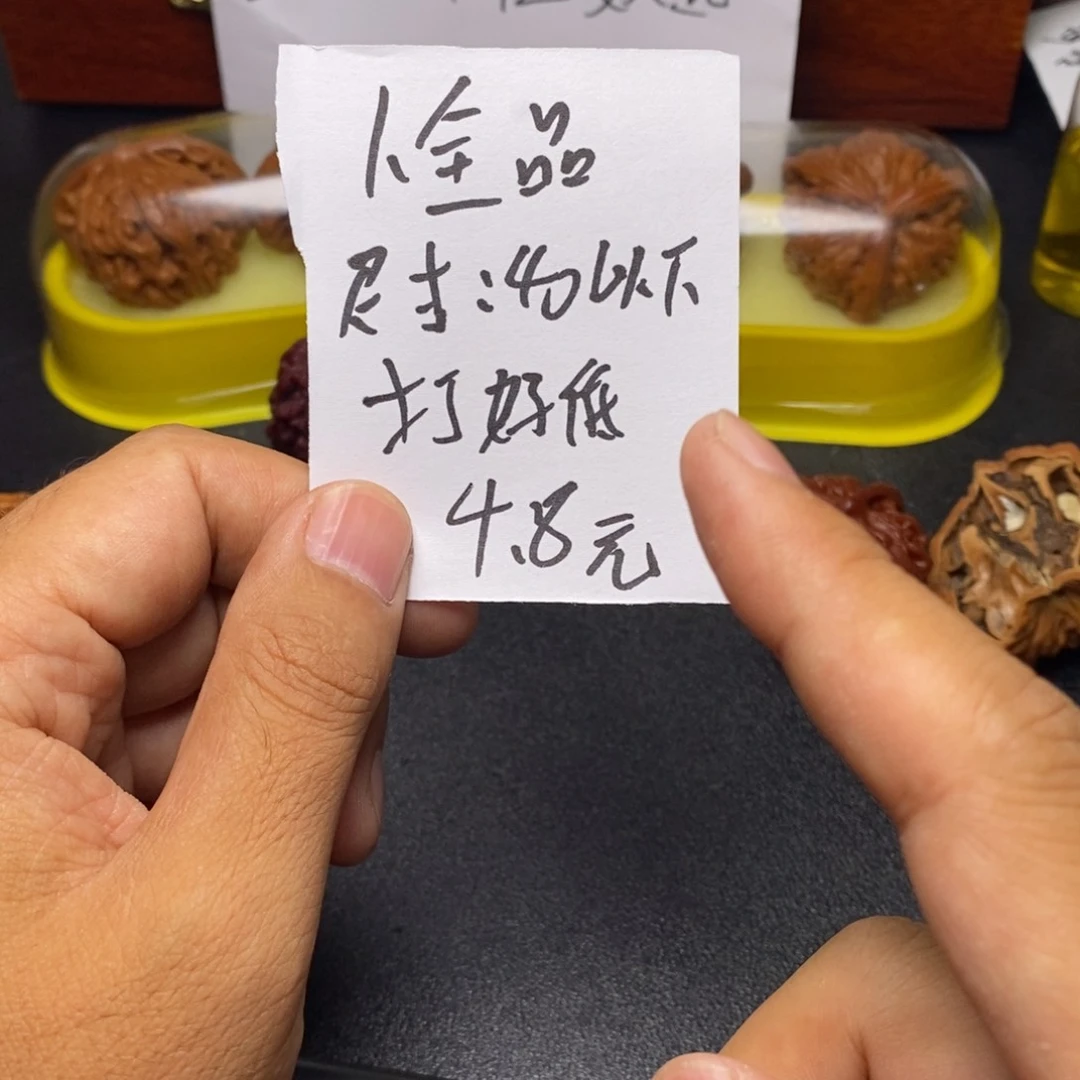 1、全品
尺寸:40以下
打好低
4.8元